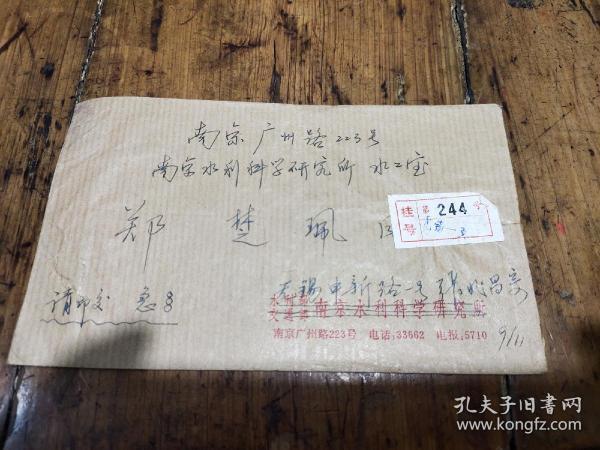 南京广州路223号
南京水利科学研究所 水工室
郑 楚 珮
挂号
第 244 号
无锡
请即交 急
南京水利科学研究所
南京广州路223号 电话,33662 电报,5710
9/11
孔夫子旧书网
www.kongfz.com